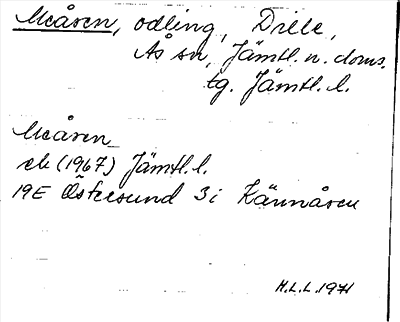 Meåren, odling, Drille,
Ås sn, Jämtl. n. doms.
tg. Jämtl. l.
Meåren
ek (1967) Jämtl. l.
19E Östersund 3i Kännåren
H.L.L. 1971